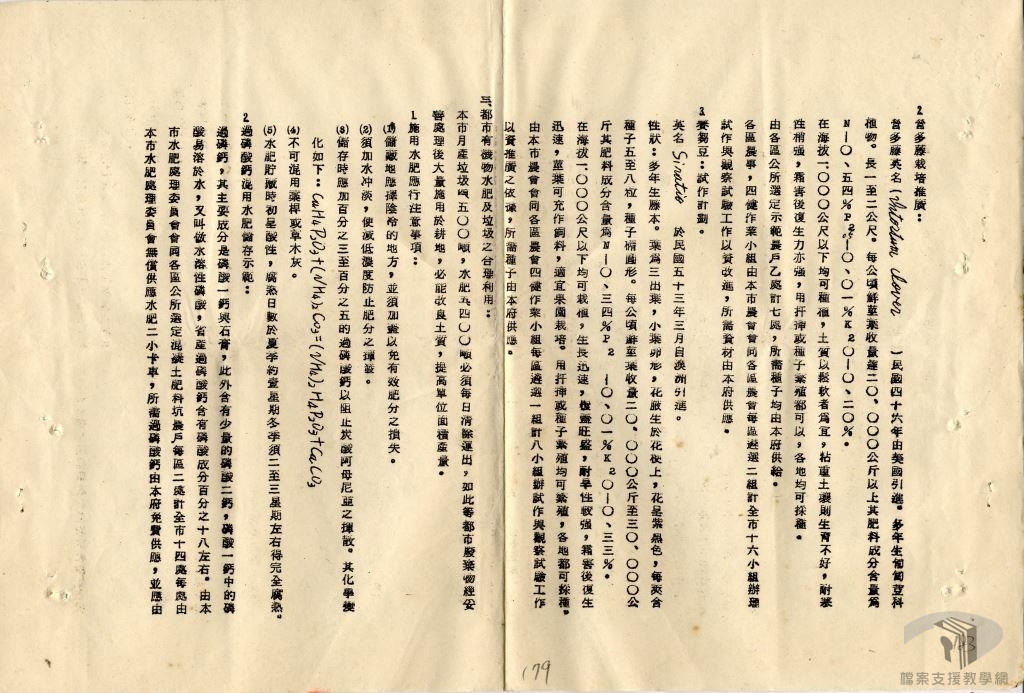 2.營多藤栽培推廣:
營多藤英名(Antortum clover)民國四十六年由美國引進。多年生匍匐荳科
植物。長一至二公尺。每公頃鮮莖葉收量達二〇、〇〇〇公斤以上其肥料成分含量爲
N—〇、五四%P2—〇、〇一%K2O—〇、二〇%。
在海拔一、〇〇〇公尺以下均可種植,土質以鬆軟者爲宜,粘重土壤則生育不好,耐寒
性稍強,霜害後復生力亦强,用扦揷或種子繁殖都可以,各地均可採種。
由各區公所選定示範農戶乙處計七處,所需種子均由本府供給。
各區農事,四健作業小組由本市農會會同各區農會每區遴選二組計全市十六小組辦理
試作與觀察試驗工作以資改進,所需資材由本府供應。
3.賽芻豆:試作計劃。
英名 Siratio 於民國五十三年三月自澳洲引進。
性狀:多年生藤本。葉爲三出葉,小葉卵形,花蔟生於花梗上,花呈紫黑色,每莢含
種子五至八粒,種子橢圓形。每公頃鮮莖葉收量二〇、〇〇〇公斤至三〇、〇〇〇公
斤其肥料成分含量爲N—〇、三四%P2 —〇、〇一%K2O—〇、三三%。
在海拔一、〇〇〇公尺以下均可栽植,生長迅速,覆蓋旺盛,耐旱性較强,霜害後復生
迅速,莖葉可充作飼料,適宜果園栽培。用扦揷或種子繁殖均可繁殖,各地都可採種。
由本市農會會同各區農會四健作業小組每區遴選一組計八小組辦試作與觀察試驗工作
以資推廣之依據,所需種子由本府供應。
三、都市有機物水肥及垃圾之合理利用:
本市月產垃圾噸五〇〇噸,水肥五四〇噸必須每日清除運出,如此等都市廢棄物經妥
善處理後大量施用於耕地,必能改良土質,提高單位面積產量。
1.施用水肥應行注意事項:
(1)儲藏地應擇陰冷的地方,並須加蓋以免有效肥分之損失。
(2)須加水冲淡,使减低濃度防止肥分之揮發。
(3)儲存時應加百分之三至百分之五的過磷酸鈣以阻止炭酸阿母尼亞之揮散。其化學變
化如下:CaH4P2O8+(NH4)2CO3=(NH4)2H4P2O8+CaCO3
(4)不可混用藁桿或草木灰。
(5)水肥貯藏時初呈酸性,腐熟日數於夏季約壹星期冬季須二至三星期左右得完全腐熟。
2.過磷酸鈣混用水肥儲存示範:
過磷鈣,其主要成分是磷酸一鈣與石膏,此外含有少量的磷酸二鈣,磷酸一鈣中的磷
酸易溶於水,又叫做水溶性磷酸,省產過磷酸鈣含有磷酸成分百分之十八左右。由本
市水肥處理委員會會同各區公所選定混凝土肥料坑農戶每區二處計全市十四處每處由
本市水肥處理委員會無償供應水肥二小卡車,所需過磷酸鈣由本府免費供應,並應由
179
檔案支援教學網